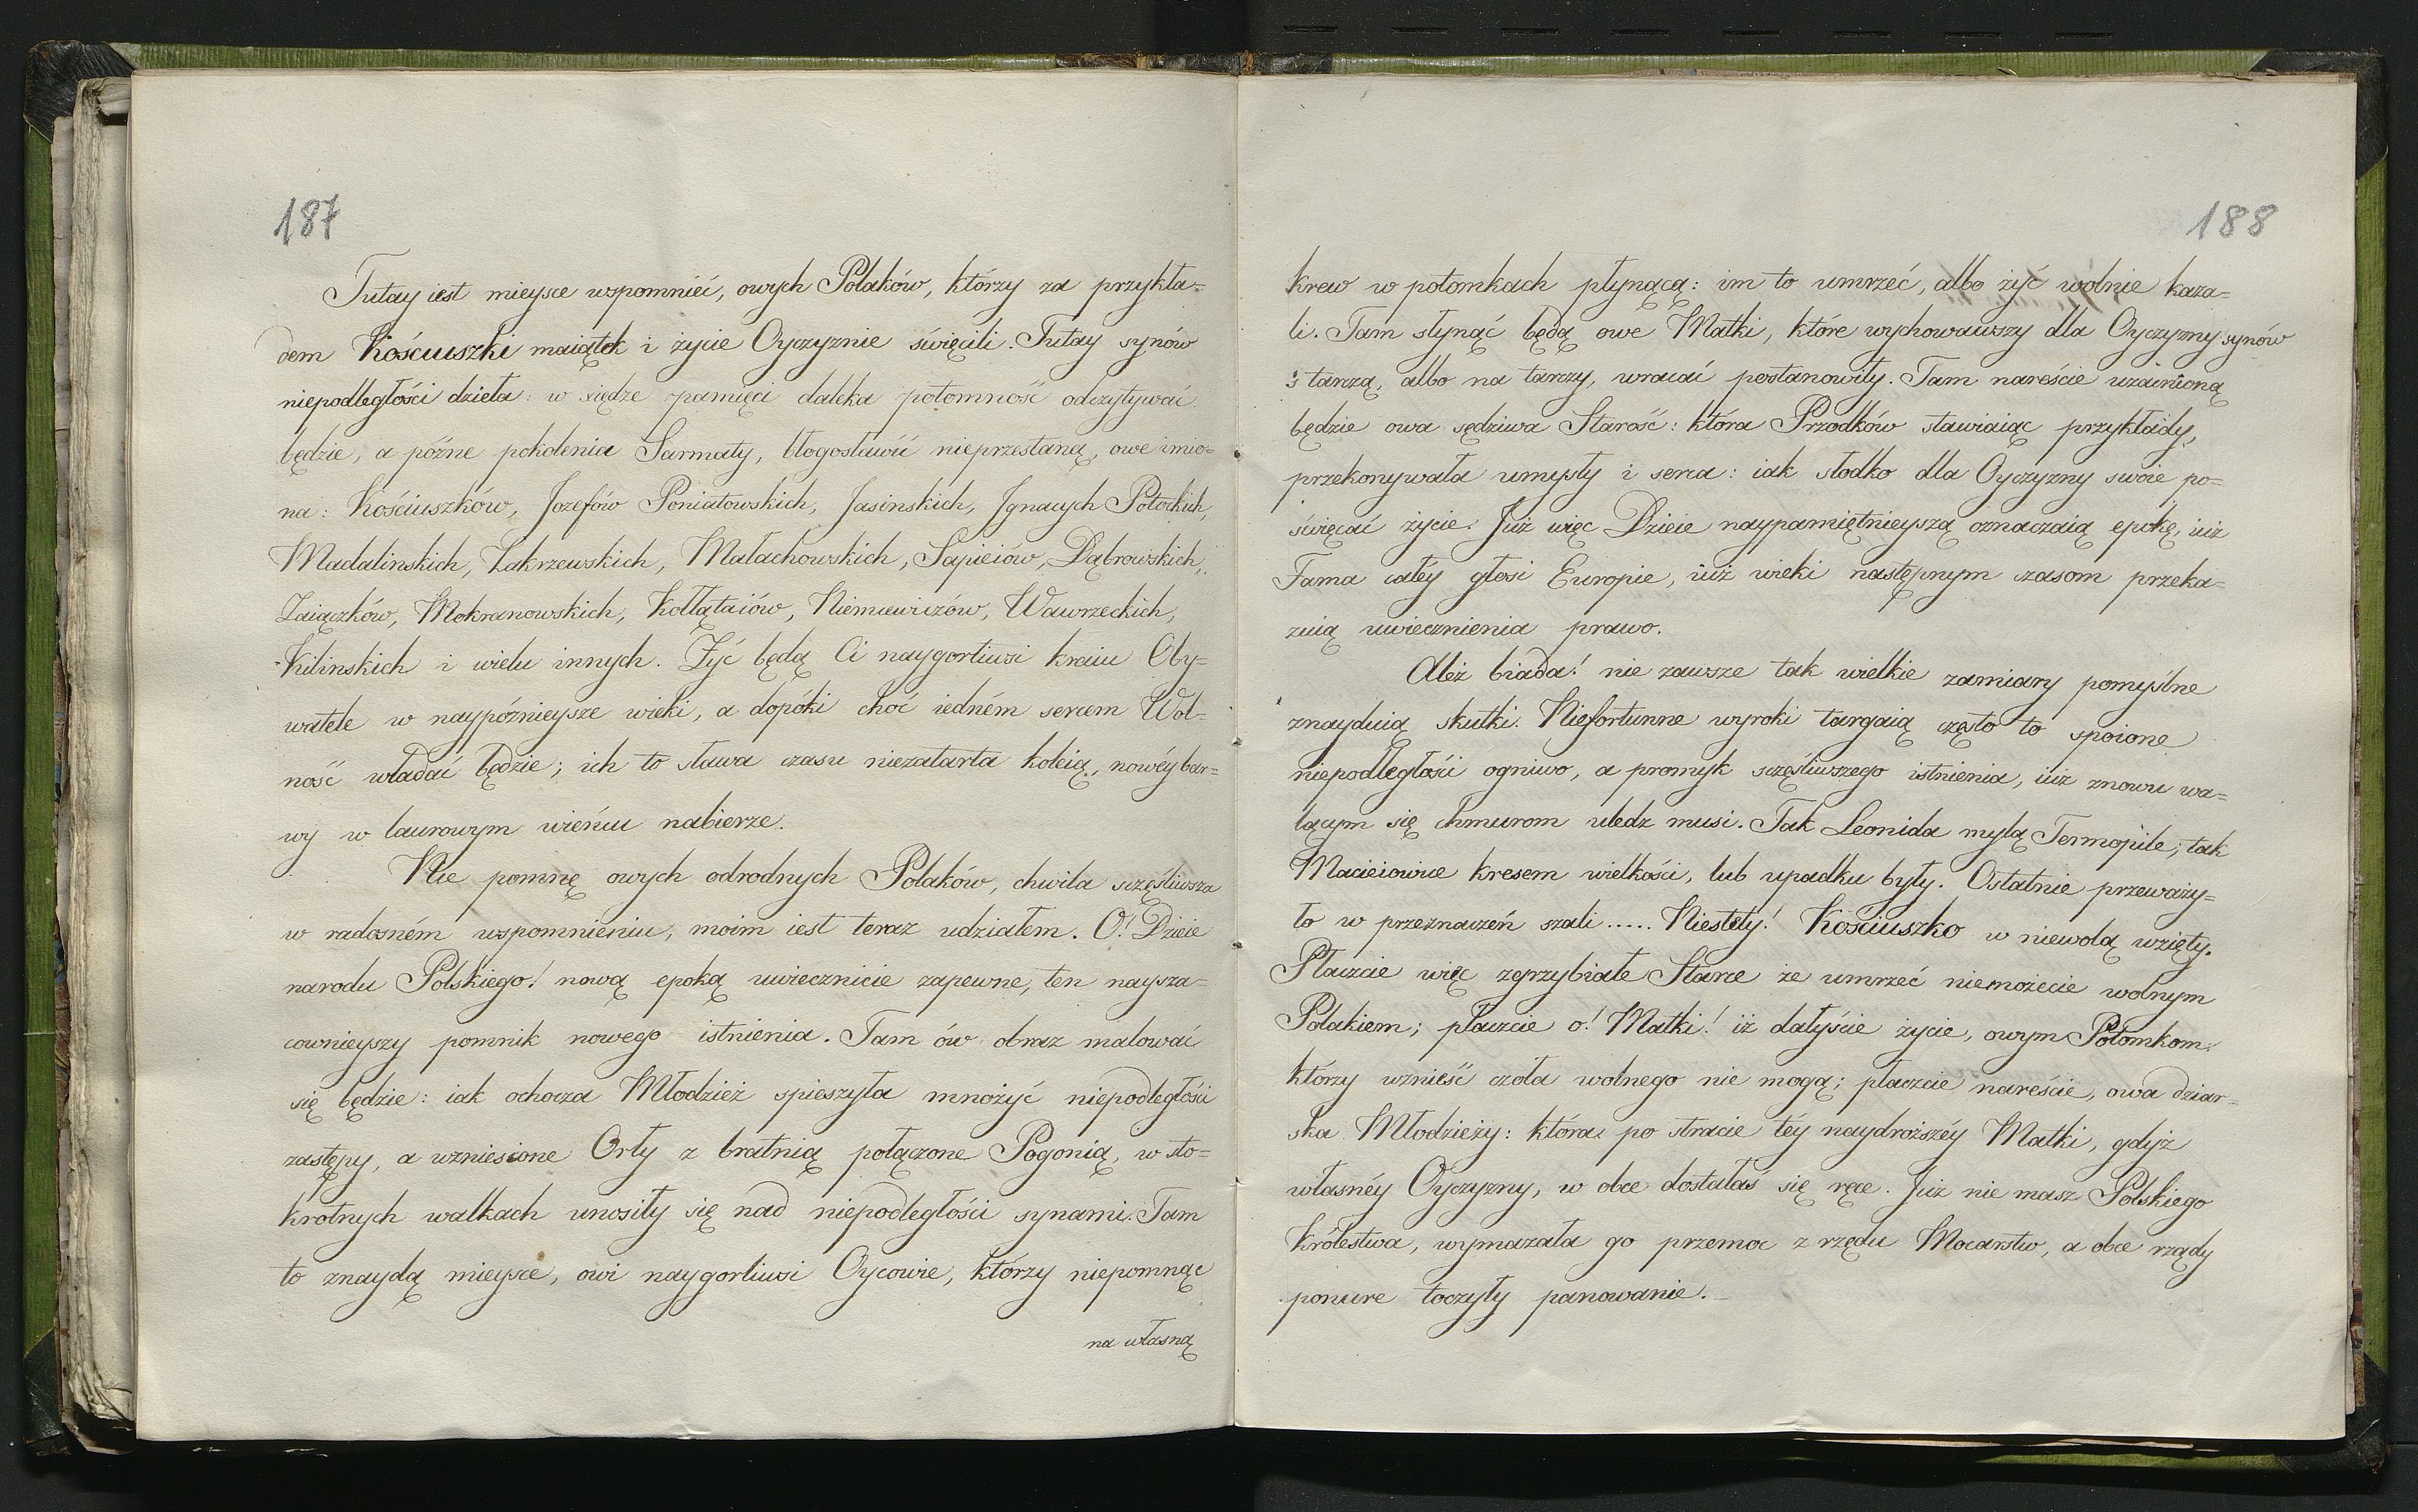 187
Tutay iest mieysce wspomnieć, owych Polaków, którzy za przykła=
dem Kościuszki maiątek i życie Oyczyznie święcili. Tutay synów
niepodległości dzieła: w siędze pamięci daleka potomność odczytywać
będzie, a późne pokolenia Sarmaty, błogosławić nieprzestaną, owe imio=
na: Kościuszków, Jozefów Poniatowskich, Jasinskich, Jgnacych Potockich,
Madalinskich, Zakrzewskich, Małachowskich, Sapieiów, Dąbrowskich,
Zaiączków, Mokranowskich, Kołłątaiów, Niemcewiczów, Wawrzeckich,
Kilinskich i wielu innych. Żyć będą Ci naygorliwsi kraiu Oby=
watele w naypóźnieysze wieki, a dopóki choć iedném sercem Wol=
ność władać będzie; ich to sława czasu niezatarta koleią, nowéy bar=
wy w laurowym wieńcu nabierze.
Nie pomnę owych odrodnych Polaków, chwila sczęśliwsza
w radosném wspomnieniu, moim iest teraz udziałem. O! Dzieie
narodu Polskiego! nową epoką uwiecznicie zapewne, ten naysza=
cownieyszy pomnik nowego istnienia. Tam ów obraz malować
się będzie: iak ochocza Młodzież spieszyła mnożyć niepodległości
zastępy, a wzniesione Orły z bratnią połączone Pogonią, w sto=
krotnych walkach unosiły się nad niepodległości synami. Tam
to znaydą mieysce, owi naygorliwsi Oycowie, którzy niepomnąc
na własną
188
krew w potomkach płynącą: im to umrzeć, albo żyć wolnie kaza=
li. Tam słynąć będą owe Matki, które wychowawszy dla Oyczyzny synów
s tarczą, albo na tarczy, wracać postanowiły. Tam nareście uzacnioną
będzie owa sędziwa Starość: która Przodków stawiaiąc przykłady,
przekonywała umysły i serca: iak słodko dla Oyczyzny swoie po=
święcać życie. Już więc Dzieie naypamiętnieyszą oznaczaią epokę, iuż
Fama całéy głosi Europie, iuż wieki następnym czasom przeka=
zuią uwiecznienia prawo.
Ależ biada! nie zawsze tak wielkie zamiary pomyślne
znayduią skutki. Niefortunne wyroki targaią często to spoione
niepodległości ogniwo, a promyk sczęśliwszego istnienia, iuż znowu wa=
lącym się chmurom uledz musi. Tak Leonida mylą Termopile; tak
Macieiowice kresem wielkości, lub upadku były. Ostatnie przeważy=
ło w przeznaczeń szali ..... Niestety! Kościuszko w niewolą wzięty.
Płaczcie więc zgrzybiałe Starce że umrzeć niemożecie wolnym
Polakiem; płaczcie o! Matki! iż dałyście życie, owym Potomkom:
którzy wznieść czoła wolnego nie mogą; płaczcie nareście, owa dziar=
ska Młodzieży: która po stracie téy naydroższéy Matki, gdyż
własnéy Oyczyzny, w obce dostałaś się ręce. Już nie masz Polskiego
Królestwa, wymazała go przemoc z rzędu Mocarstw, a obce rządy
ponure toczyły panowanie.